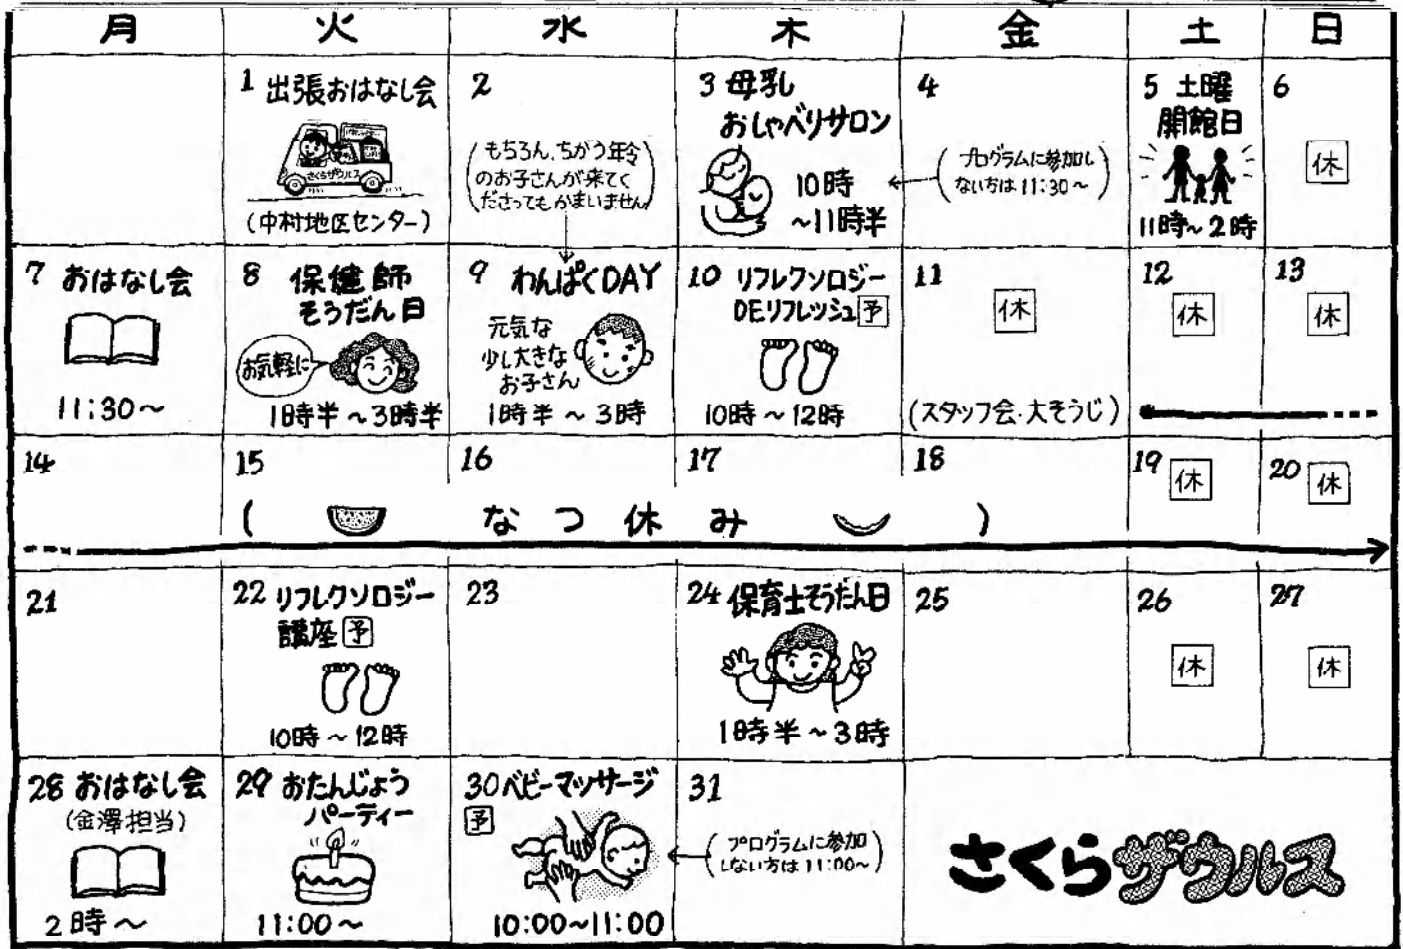 月 火 水 木 金 土 日
1 出張おはなし会
さくらザウルス
(中村地区センター)
2
(もちろん、ちがう年令
のお子さんが来てく
ださってもかまいません)
3 母乳
おしゃべりサロン
10時
~11時半
4
(プログラムに参加し
ない方は11:30~)
5 土曜
開館日
11時~2時
6
休
7 おはなし会
11:30~
8 保健師
そうだん日
お気軽に
1時半~3時半
9 わんぱくDAY
元気な
少し大きな
お子さん
1時半~3時
10 リフレクソロジー
DEリフレッシュ予
10時~12時
11
休
(スタッフ会・大そうじ)
12
休
13
休
14
15
16
17
18
19
休
20
休
(なつ休み)
21
22 リフレクソロジー
講座予
10時~12時
23
24 保育士そうだん日
1時半~3時
25
26
休
27
休
28 おはなし会
(金澤担当)
2時~
29 おたんじょう
パーティー
11:00~
30 ベビーマッサージ
予
10:00~11:00
31
(プログラムに参加
しない方は11:00~)
さくらザウルス